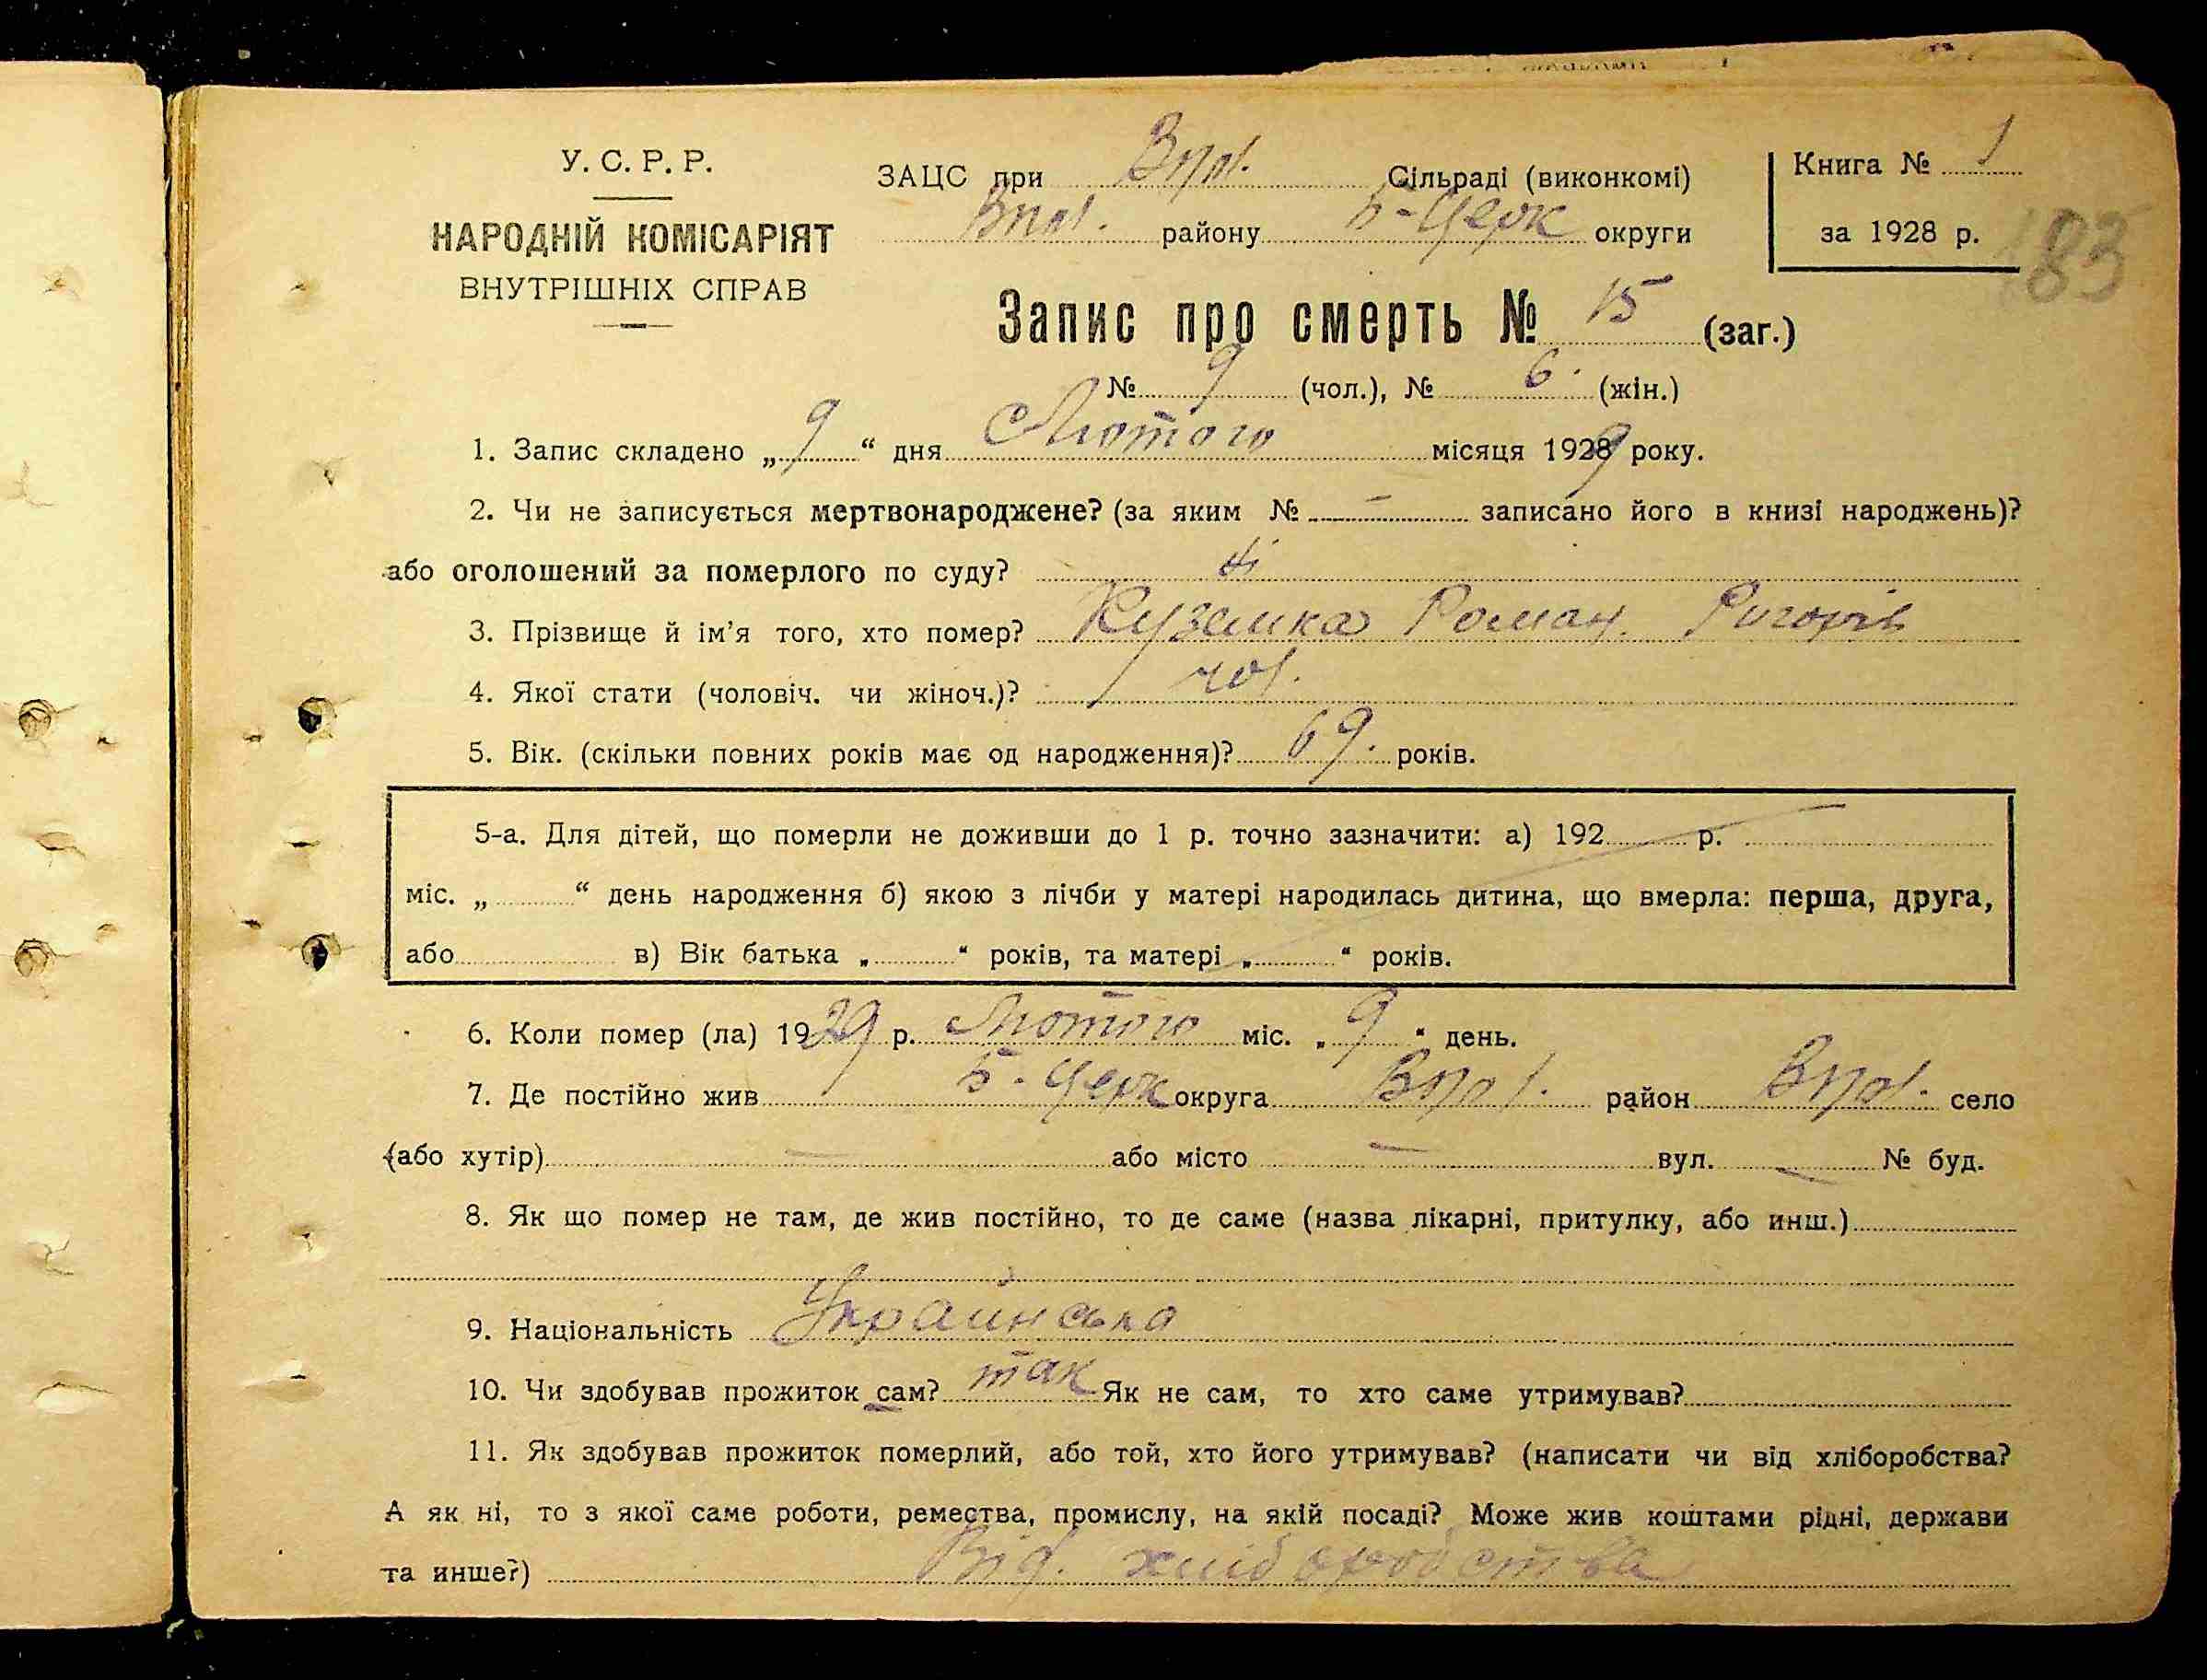 У. С. Р. Р.
НАРОДНІЙ КОМІСАРІЯТ
ВНУТРІШНІХ СПРАВ
ЗАЦС при Впол. Сільраді (виконкомі)
Впол. району Б-Церк округи
Книга № 1
за 1928 р.
183
Запис про смерть № 15 (заг.)
№ 9 (чол.), № 6. (жін.)
1. Запис складено „ 9 “ дня Лютого місяця 19289 року.
2. Чи не записується мертвонароджене? (за яким № – записано його в книзі народжень)?
або оголошений за померлого по суду? ні
3. Прізвище й ім’я того, хто помер? Куземка Роман. Ригорів
4. Якої стати (чоловіч. чи жіноч.)? чол.
5. Вік. (скільки повних років має од народження)? 69. років.
5-а. Для дітей, що померли не доживши до 1 р. точно зазначити: а) 192 р.
міс. „ “ день народження б) якою з лічби у матері народилась дитина, що вмерла: перша, друга,
або в) Вік батька „ “ років, та матері „ “ років.
6. Коли помер (ла) 1929 р. Лютого міс. „ 9 “ день.
7. Де постійно жив Б-Церк округа Впол. район Впол. село
(або хутір) — або місто — вул. — № буд.
8. Як що помер не там, де жив постійно, то де саме (назва лікарні, притулку, або инш.)
9. Національність Українська
10. Чи здобував прожиток сам? так Як не сам, то хто саме утримував?
11. Як здобував прожиток померлий, або той, хто його утримував? (написати чи від хліборобства?
А як ні, то з якої саме роботи, ремества, промислу, на якій посаді? Може жив коштами рідні, держави
та инше?) Від. хліборобства